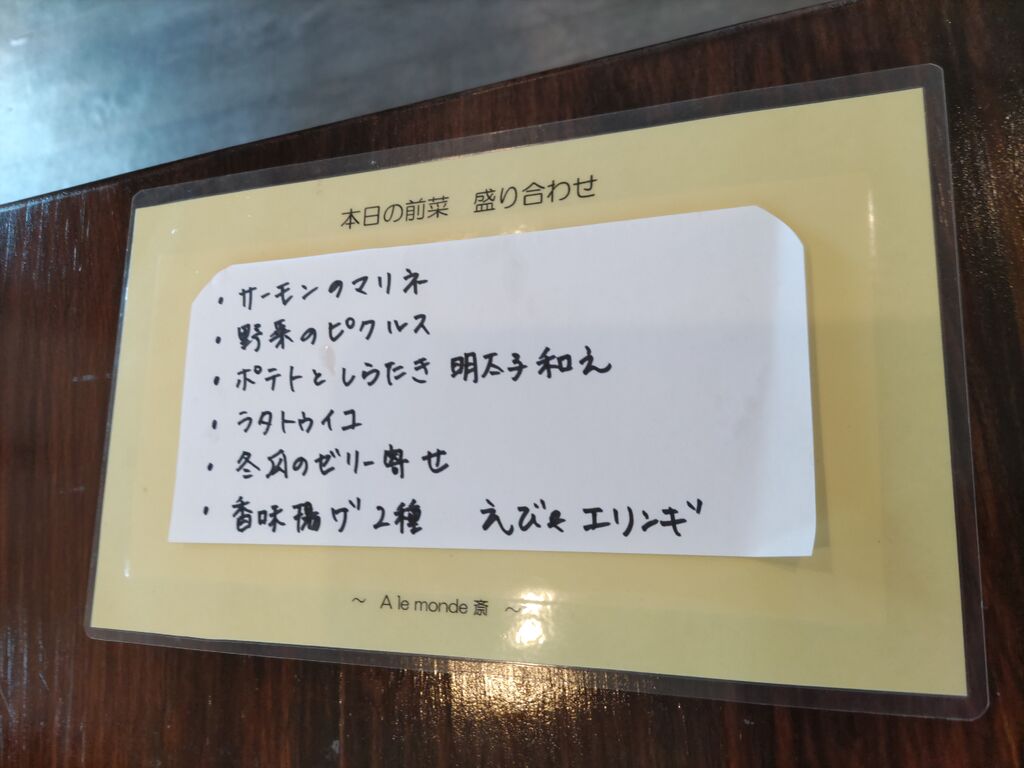 本日の前菜 盛り合わせ
・サーモンのマリネ
・野菜のピクルス
・ポテトとしらたき 明太子和え
・ラタトゥイユ
・冬瓜のゼリー寄せ
・香味揚げ2種 えび エリンギ
〜 A le monde 斎 〜